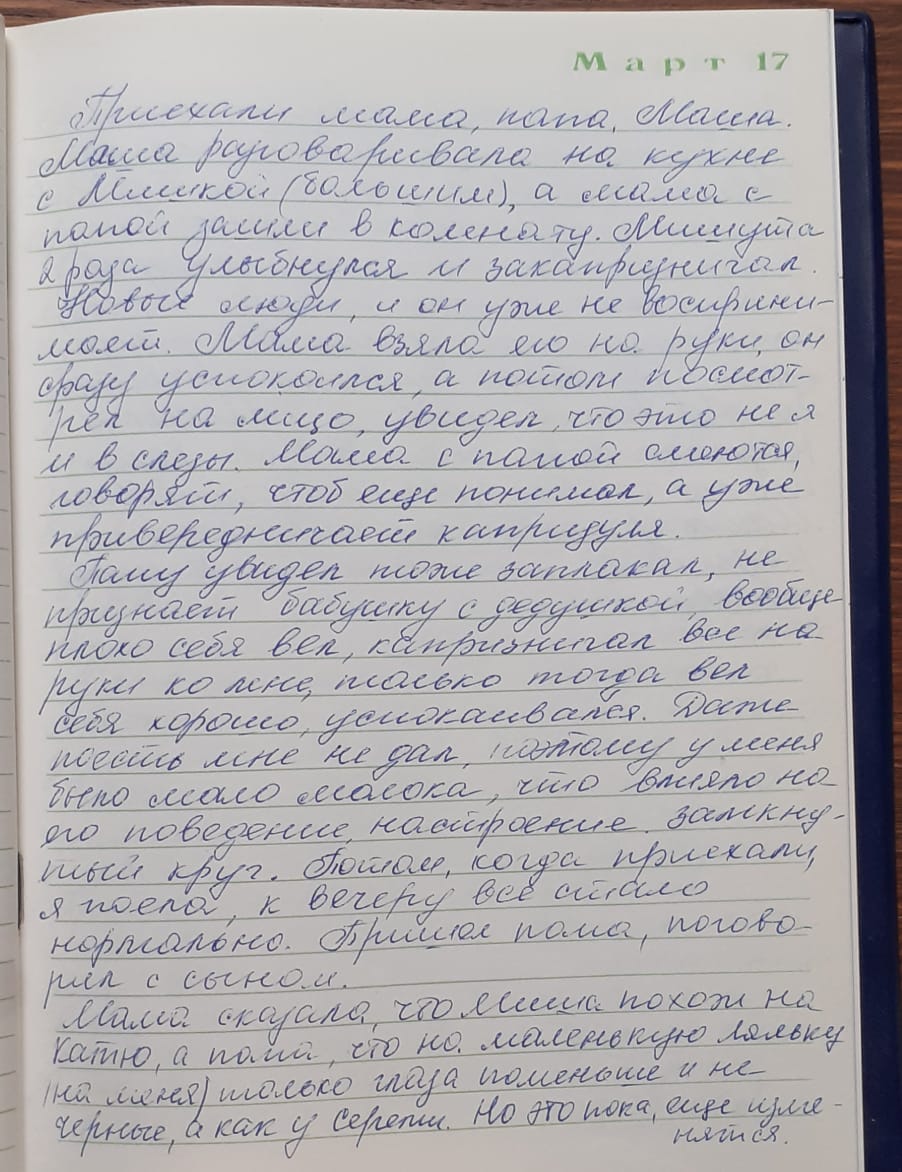 Март 17
Приехали мама, папа, Маша.
Маша разговаривала на кухне
с Мишкой (большим), а мама с
папой зашли в комнату. Мишута
2 раза улыбнулся и закапризничал.
Новые люди, и он уже не восприни-
мает. Мама взяла его на руки, он
сразу успокоился, а потом посмот-
рел на лицо, увидел, что это не я
и в слезы. Мама с папой смеются,
говорят, чтоб еще понимал, а уже
привередничает капризуля.
Папу увидел тоже заплакал, не
признает бабушку с дедушкой, вообще
плохо себя вел, капризничал все на
руки ко мне, только тогда вел
себя хорошо, успокаивался. Даже
поесть мне не дал, поэтому у меня
было мало молока, что влияло на
его поведение, настроение. замкну-
тый круг. Потом, когда приехали,
я поела, к вечеру все стало
нормально. Пришел папа, погово-
рил с сыном.
Мама сказала, что Миша похож на
Катю, а папа, что на маленькую ляльку
(на меня) только глаза поменьше и не
черные, а как у Сережи. Но это пока, еще изме-
нятся.